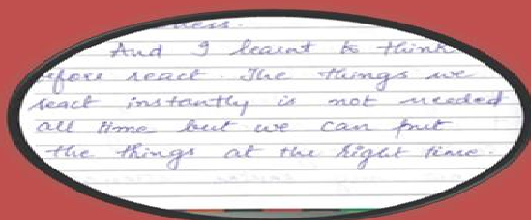 ness.
And I learnt to think
before react. The things we
react instantly is not needed
all time but we can put
the things at the right time.